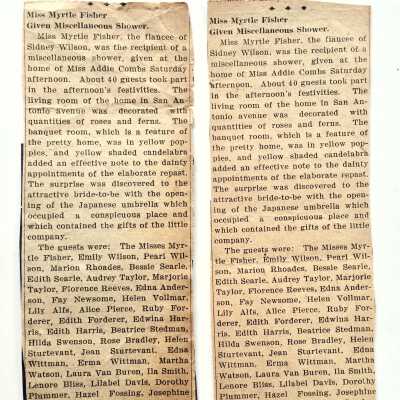 Miss Myrtle Fisher
Given Miscellaneous Shower.
Miss Myrtle Fisher, the fiancee of
Sidney Wilson, was the recipient of a
miscellaneous shower, given at the
home of Miss Addie Combs Saturday
afternoon. About 40 guests took part
in the afternoon's festivities. The
living room of the home in San An-
tonio avenue was decorated with
quantities of roses and ferns. The
banquet room, which is a feature of
the pretty home, was in yellow pop-
pies, and yellow shaded candelabra
added an effective note to the dainty
appointments of the elaborate repast.
The surprise was discovered to the
attractive bride-to-be with the open-
ing of the Japanese umbrella which
occupied a conspicuous place and
which contained the gifts of the little
company.
The guests were: The Misses Myr-
tle Fisher, Emily Wilson, Pearl Wil-
son, Marion Rhoades, Bessie Searle,
Edith Searle, Audrey Taylor, Marjorie
Taylor, Florence Reeves, Edna Ander-
son, Fay Newsome, Helen Vollmar,
Lily Alfs, Alice Pierce, Ruby For-
derer, Edith Forderer, Edwina Har-
ris, Edith Harris, Beatrice Stedman,
Hilda Swenson, Rose Bradley, Helen
Sturtevant, Jean Sturtevant, Edna
Wittman, Erma Wittman, Martha
Watson, Laura Van Buren, Ila Smith,
Lenore Bliss, Lilabel Davis, Dorothy
Plummer, Hazel Fossing, Josephine
Miss Myrtle Fisher
Given Miscellaneous Shower.
Miss Myrtle Fisher, the fiancee of
Sidney Wilson, was the recipient of a
miscellaneous shower, given at the
home of Miss Addie Combs Saturday
afternoon. About 40 guests took part
in the afternoon's festivities. The
living room of the home in San An-
tonio avenue was decorated with
quantities of roses and ferns. The
banquet room, which is a feature of
the pretty home, was in yellow pop-
pies, and yellow shaded candelabra
added an effective note to the dainty
appointments of the elaborate repast.
The surprise was discovered to the
attractive bride-to-be with the open-
ing of the Japanese umbrella which
occupied a conspicuous place and
which contained the gifts of the little
company.
The guests were: The Misses Myr-
tle Fisher, Emily Wilson, Pearl Wil-
son, Marion Rhoades, Bessie Searle,
Edith Searle, Audrey Taylor, Marjorie
Taylor, Florence Reeves, Edna Ander-
son, Fay Newsome, Helen Vollmar,
Lily Alfs, Alice Pierce, Ruby For-
derer, Edith Forderer, Edwina Har-
ris, Edith Harris, Beatrice Stedman,
Hilda Swenson, Rose Bradley, Helen
Sturtevant, Jean Sturtevant, Edna
Wittman, Erma Wittman, Martha
Watson, Laura Van Buren, Ila Smith,
Lenore Bliss, Lilabel Davis, Dorothy
Plummer, Hazel Fossing, Josephine